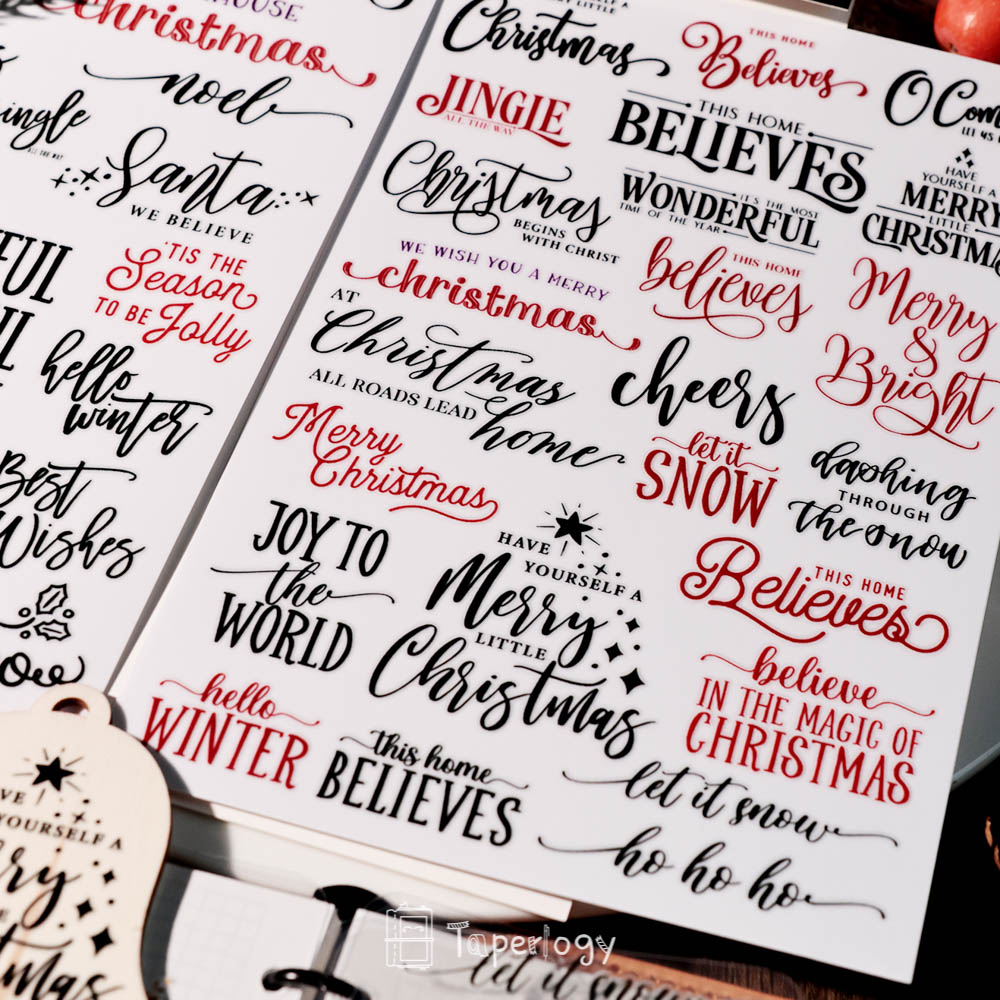 HOUSE
christmas
noel
Santa
WE BELIEVE
'TIS THE
Season
TO BE Jolly
hello
winter
Best
Wishes
Christmas
THIS HOME
Believes
JINGLE
ALL THE WAY
THIS HOME
BELIEVES
Christmas
BEGINS
WITH CHRIST
IT'S THE MOST
WONDERFUL
TIME OF THE YEAR
HAVE
YOURSELF A
MERRY
LITTLE
WE WISH YOU A MERRY
christmas
THIS HOME
believes
Merry
&
Bright
AT
Christmas
ALL ROADS LEAD
home
cheers
Merry
Christmas
let it
SNOW
dashing
THROUGH
the snow
JOY TO
the
WORLD
HAVE
YOURSELF A
Merry
LITTLE
Christmas
THIS HOME
Believes
believe
IN THE MAGIC OF
CHRISTMAS
hello
WINTER
this home
BELIEVES
let it snow
ho ho ho
YOURSELF A
Taperlogy
let it snow